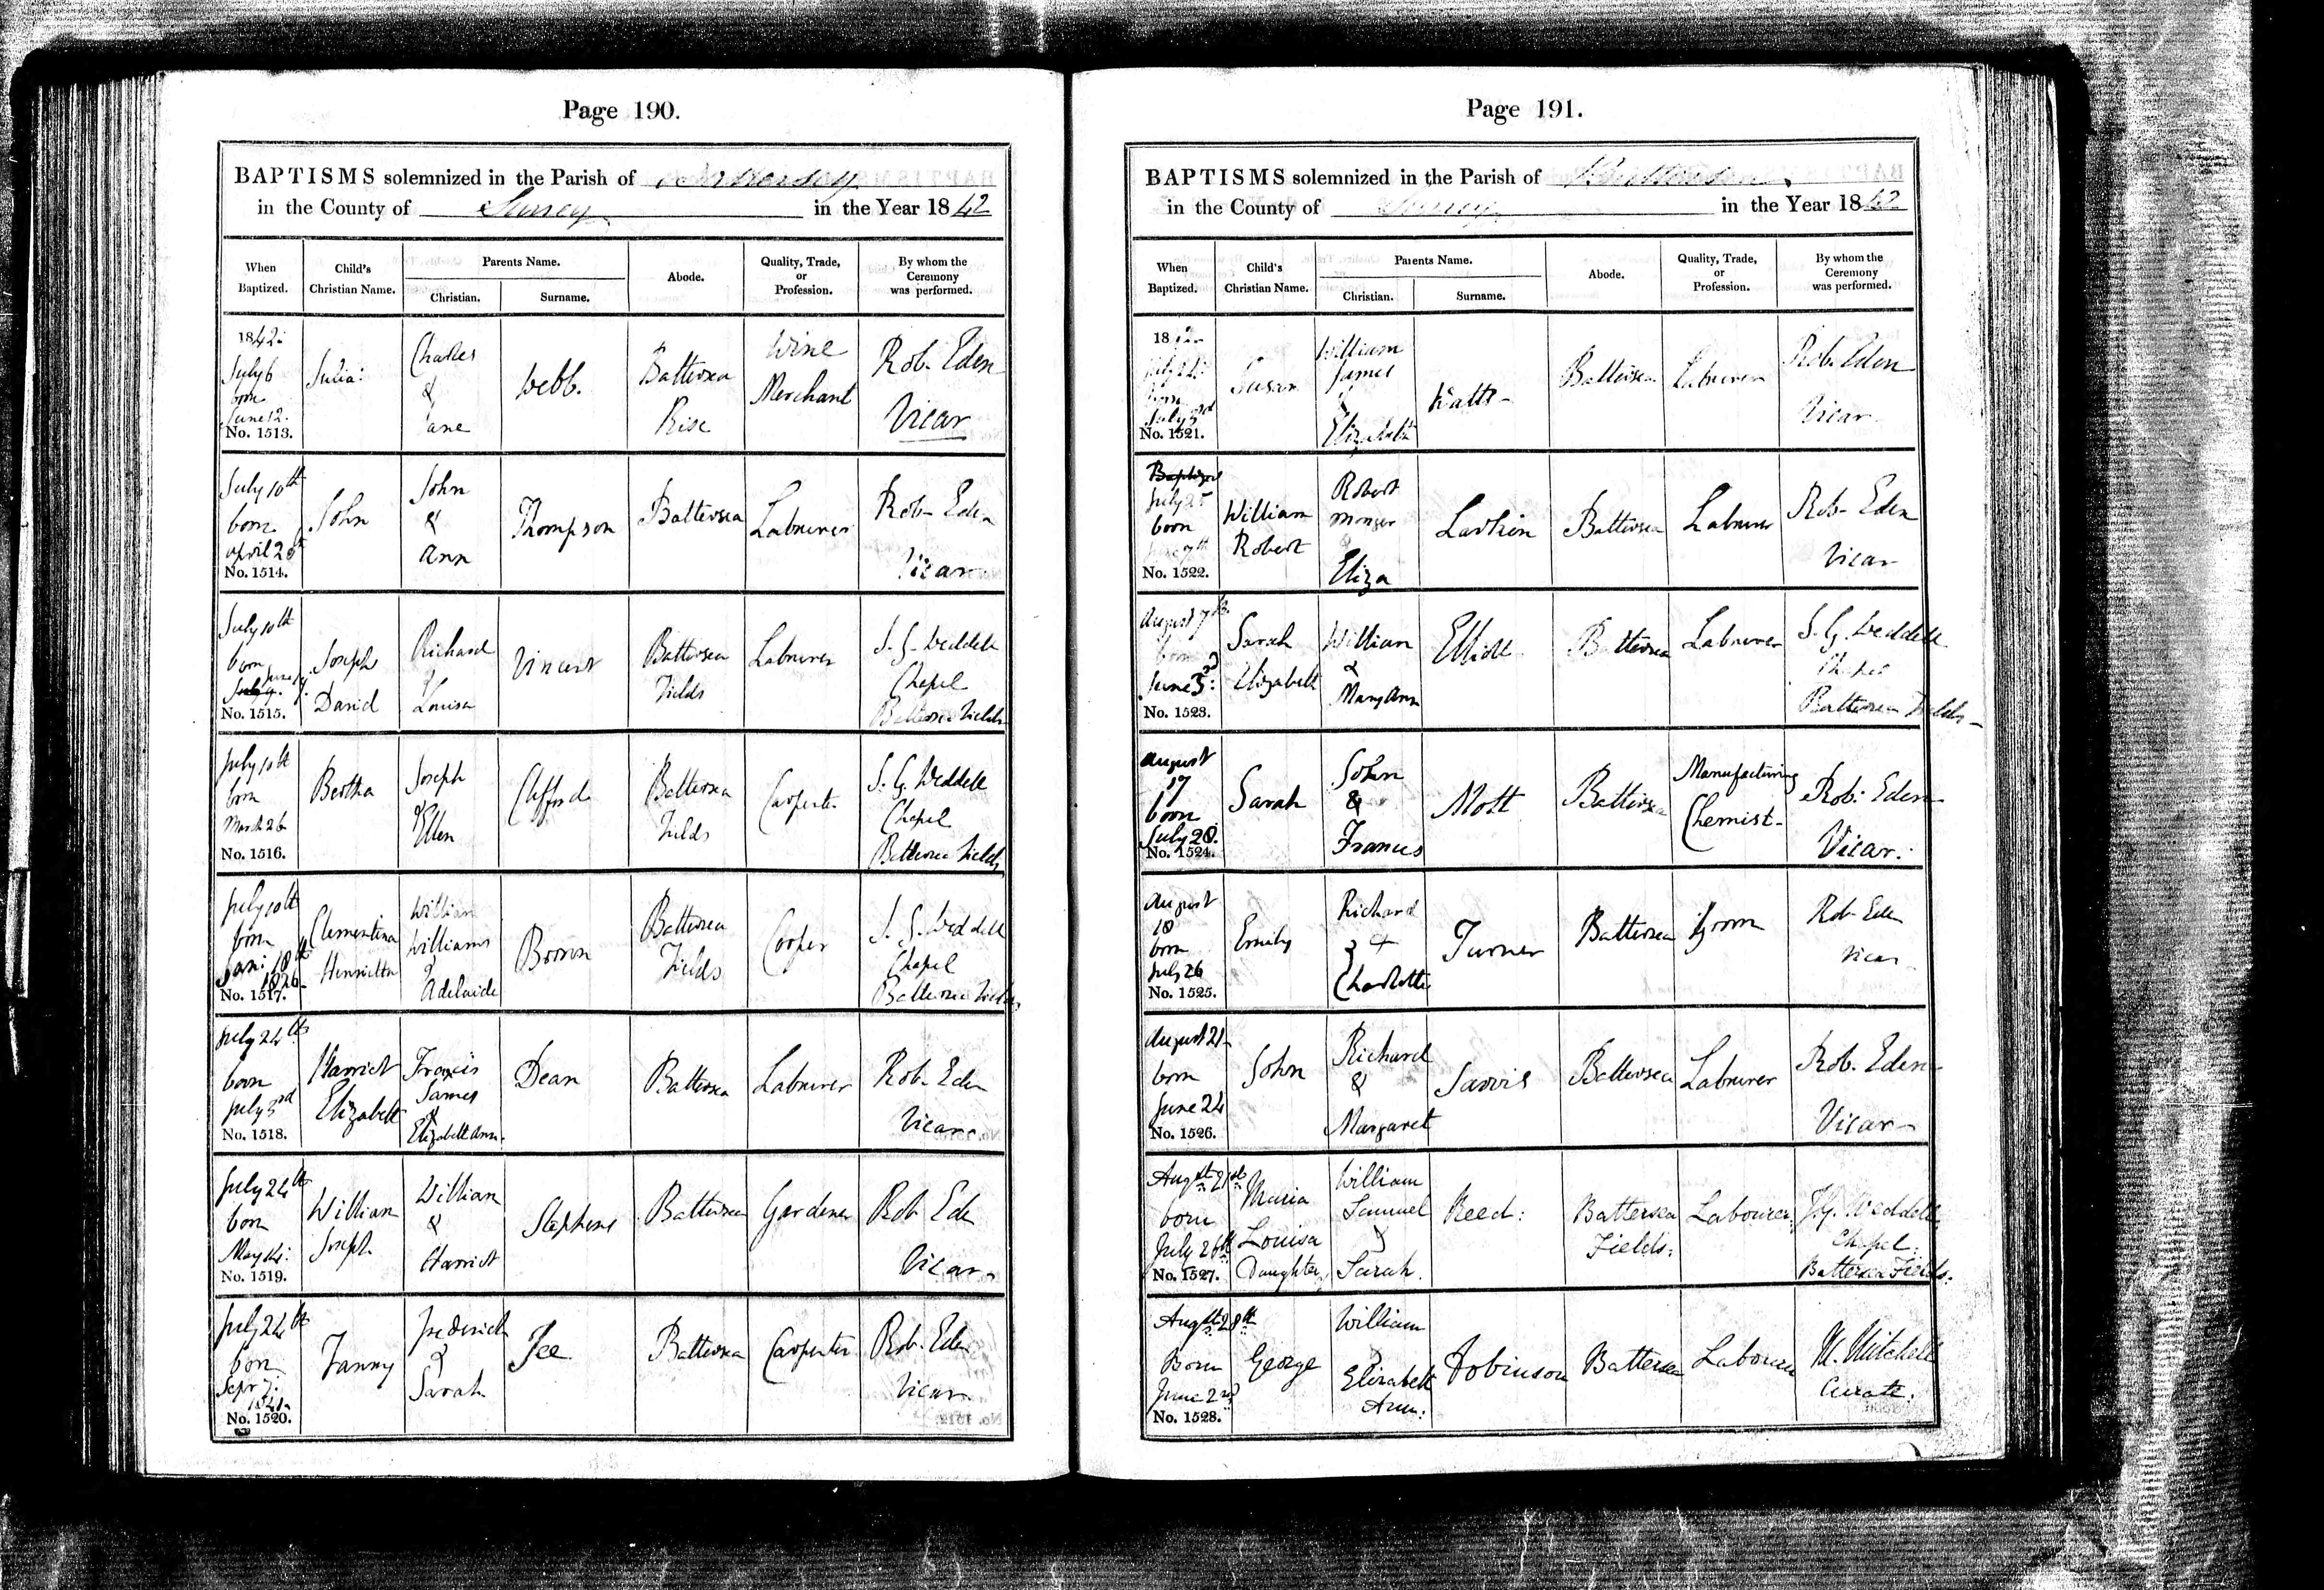 Page 190.
BAPTISMS solemnized in the Parish of Battersea
in the County of Surrey in the Year 1842
When Baptized.
Child's Christian Name.
Parents Name.
Christian.
Surname.
Abode.
Quality, Trade, or Profession.
By whom the Ceremony was performed.
1842.
July 6
born
June 12.
No. 1513.
Julia
Charles
&
Jane
Webb.
Battersea
Rise
Wine
Merchant
Rob. Eden
Vicar
July 10th
born
April 28th
No. 1514.
John
John
&
Ann
Thompson
Battersea
Labourer
Rob. Eden
Vicar
July 10th
born
June 19.
No. 1515.
Joseph
David
Richard
&
Louisa
Vincent
Battersea
Fields
Labourer
J. G. Weddell
Chapel
Battersea Fields
July 10th
born
March 26
No. 1516.
Bertha
Joseph
&
Ellen
Clifford
Battersea
Fields
Carpenter
J. G. Weddell
Chapel
Battersea Fields
July 10th
born
Jan: 18th
1826.
No. 1517.
Clementina
Henrietta
William
Williams
&
Adelaide
Brown
Battersea
Fields
Cooper
J. G. Weddell
Chapel
Battersea Fields
July 24th
born
July 3rd
No. 1518.
Harriet
Elizabeth
Francis
James
&
Elizabeth Ann.
Dean
Battersea
Labourer
Rob. Eden
Vicar
July 24th
born
May 14:
No. 1519.
William
Joseph
William
&
Harriet
Stephens
Battersea
Gardener
Rob. Eden
Vicar
July 24th
born
Sepr 7:
1841.
No. 1520.
Fanny
Frederick
&
Sarah
Jee
Battersea
Carpenter
Rob. Eden
Vicar
Page 191.
BAPTISMS solemnized in the Parish of Battersea
in the County of Surrey in the Year 1842
When Baptized.
Child's Christian Name.
Parents Name.
Christian.
Surname.
Abode.
Quality, Trade, or Profession.
By whom the Ceremony was performed.
1842
July 24
born
July 3rd
No. 1521.
Susan
William
James
&
Elizabeth
Watts
Battersea
Labourer
Rob. Eden
Vicar
Baptized
July 25
born
7th
No. 1522.
William
Robert
Robert
Monger
&
Eliza
Larkin
Battersea
Labourer
Rob. Eden
Vicar
August 7th
born
June 3rd
No. 1523.
Sarah
Elizabeth
William
&
Mary Ann
Elliott
Battersea
Labourer
J. G. Weddell
Chapel
Battersea Fields
August
17
born
July 20.
No. 1524.
Sarah
John
&
Frances
Mott
Battersea
Manufacturing
Chemist
Rob: Eden
Vicar.
August
18
born
July 26
No. 1525.
Emily
Richard
&
Charlotte
Turner
Battersea
Groom
Rob. Eden
Vicar
August 21
born
June 24
No. 1526.
John
Richard
&
Margaret
Jarvis
Battersea
Labourer
Rob. Eden
Vicar
Augst 21st
born
July 26th
No. 1527.
Maria
Louisa
Daughter
William
Samuel
&
Sarah.
Reed:
Battersea
Fields:
Labourer
J. G. Weddell
Chapel:
Battersea Fields.
Augst 28th
Born
June 2nd
No. 1528.
George
William
&
Elizabeth
Ann:
Robinson
Battersea
Labourer
M. Mitchell
Curate.